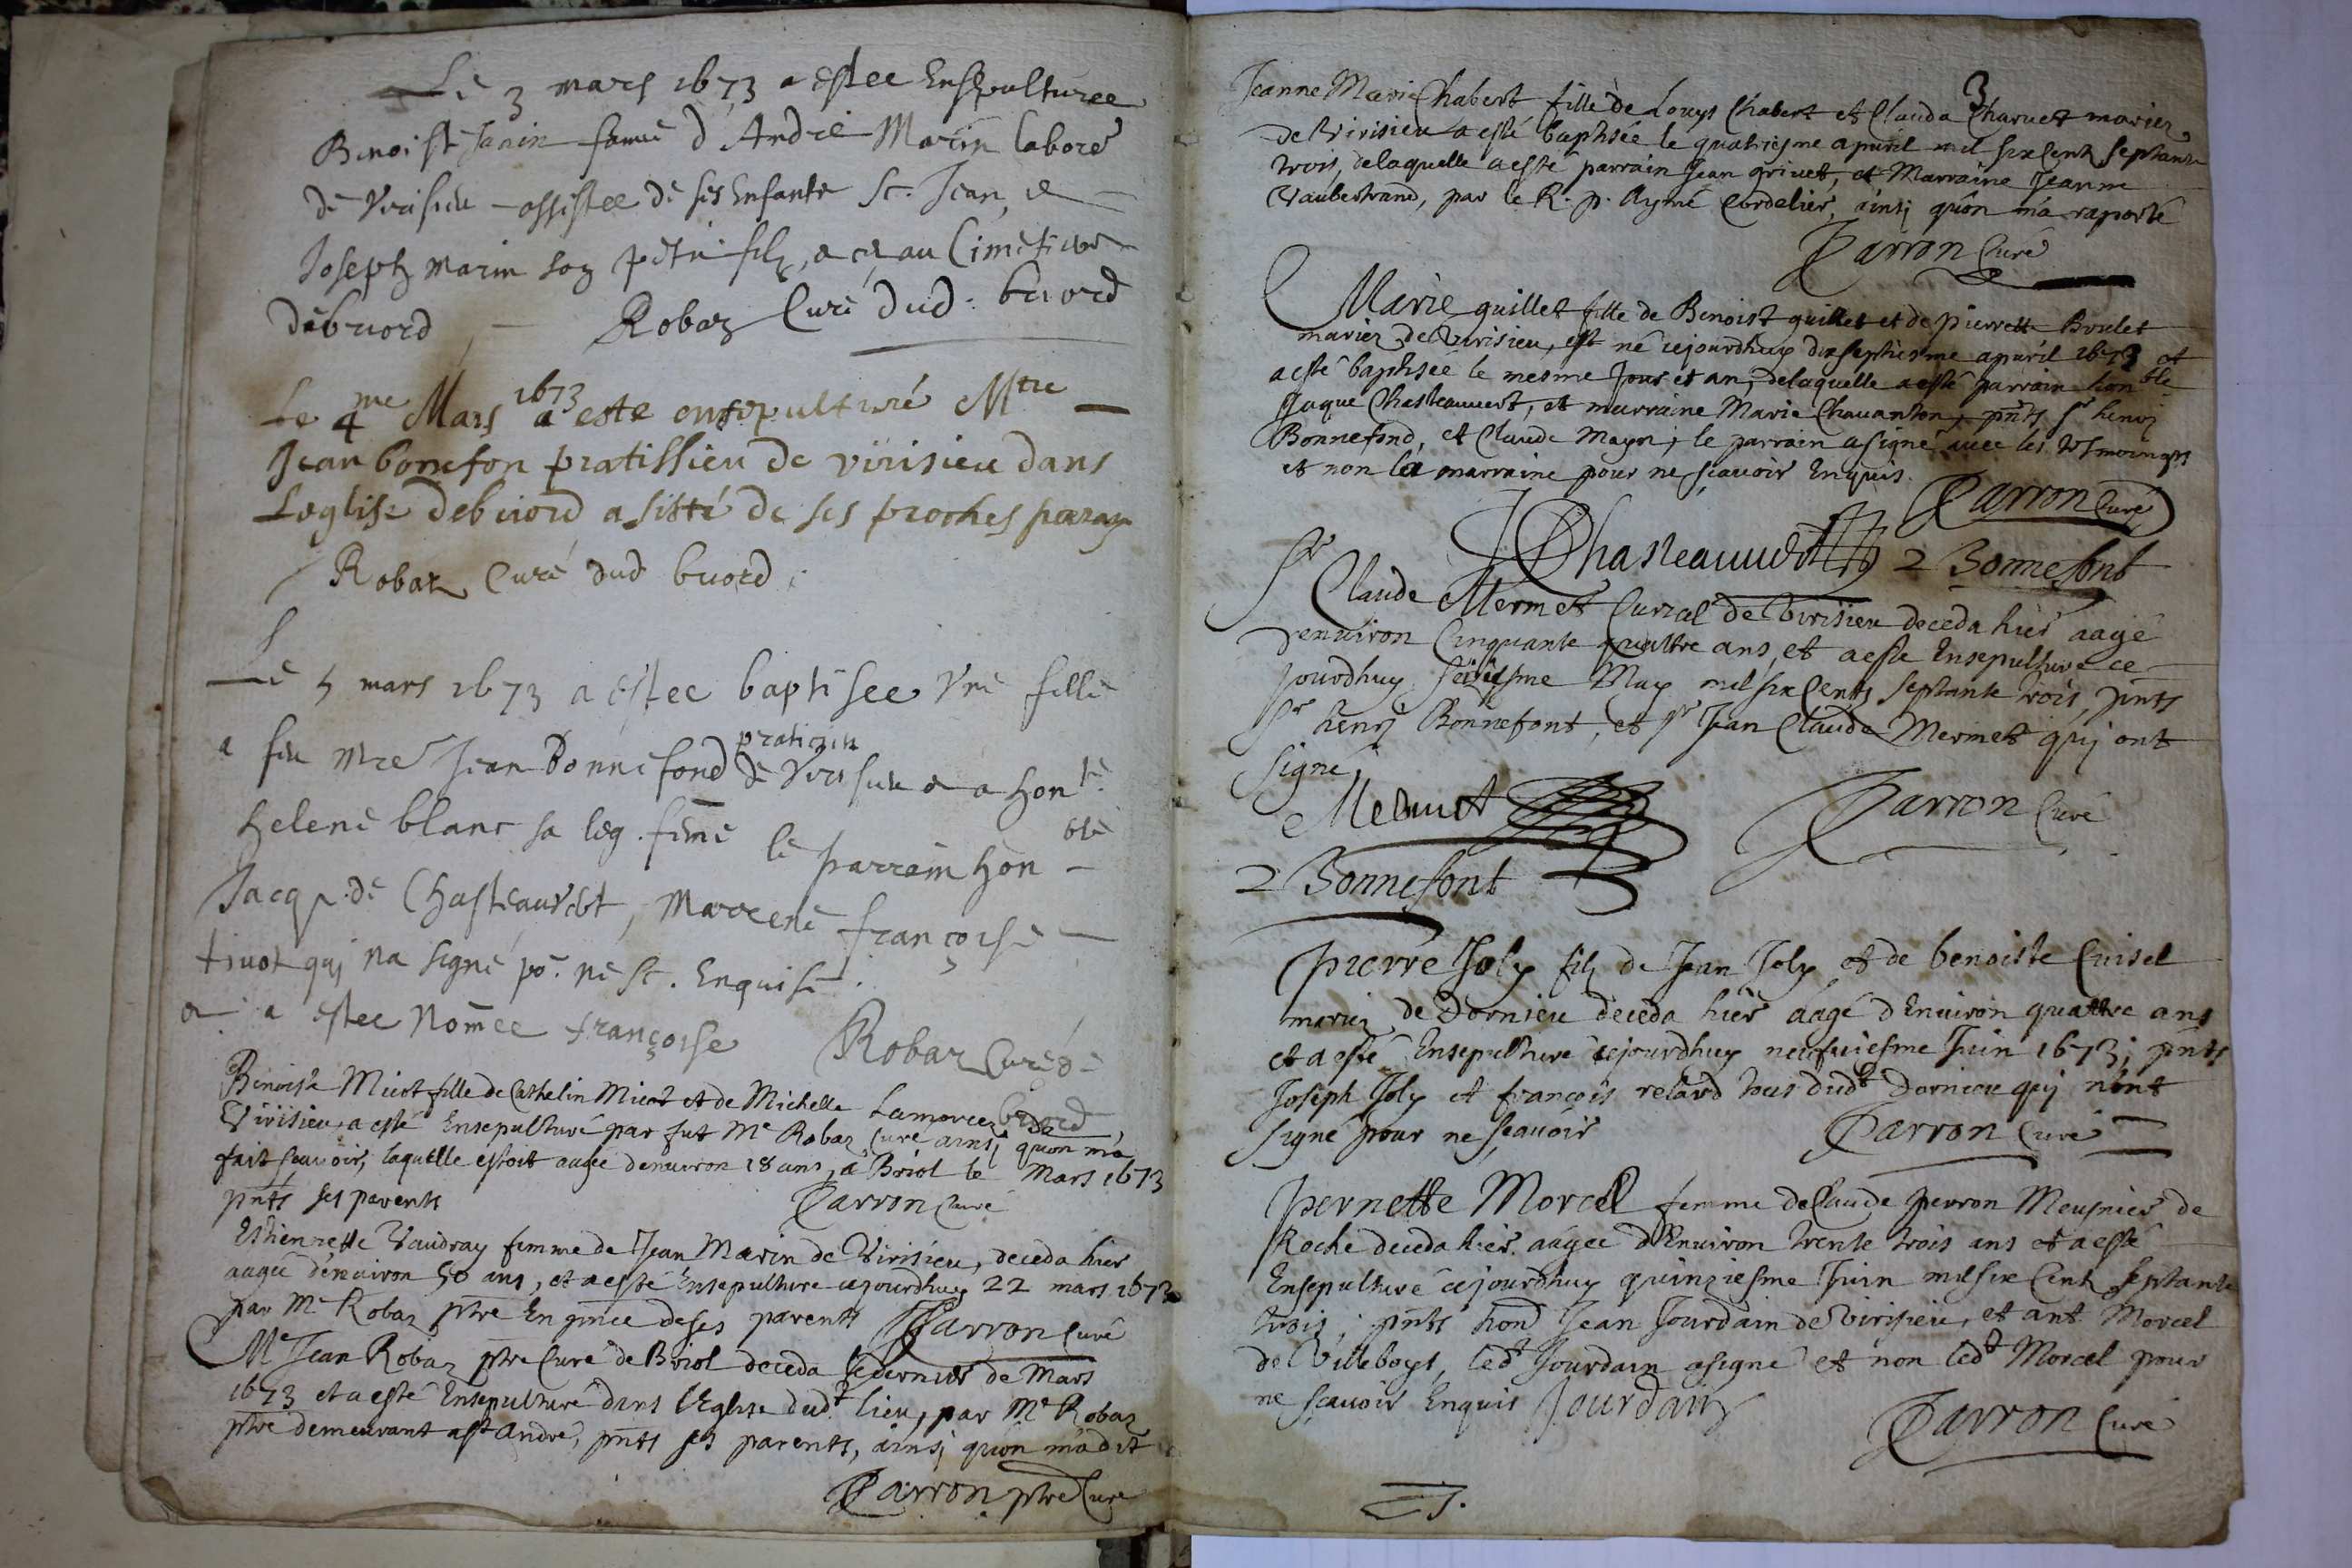 Le 3 mars 1673 a estee Ensepulturee
Benoiste Janin famè d'Andrè Marin labore
dè Virisieu assistee dè ses Enfants Sc. Jean, e
Joseph marin son petit filz, a esté au Cimetiere
dèbriord Robaz Curè dud. briord
Le 4me Mars 1673 a este ensepulturé Mtre
Jean bonefon pratissien de virisieu dans
Leglise debriord asisté de ses proches parans
Robaz Curé dud briord
Lè 5 mars 1673 a estee baptisee vnè fillè
a feu mre Jean Bonnefond praticien dè Virisieu e a honle
helenè blanc sa leg. femè lè parrein honble
Jacq. dè Chasteauvert, Marrenè françoisè
tivot quj na signé po. nè sc. Enquisè.
e a estee Nomee françoise Robaz Curé de
briord
Benoiste Miiot fille de Cathelin Miiot et de Michelle Lamorce de
Virisieu, a esté Ensepulturé par fut Me Robaz Curé ainsj quon ma
fait scauoir, laquelle estoit augée denuiron 18 ans, a Briol le Mars 1673
pnts ses parents Parron Curé
Estienrette Vaudray femme de Jean Marin de Virisieu, deceda hier
augée dénuiron 50 ans, et a esté Ensepulture cejourdhuy 22 mars 1673
par Me Robaz ptre En pnce deses parents Parron Curé
Me Jean Robaz ptre Curé de Briol deceda le dernier de Mars
1673 et a esté Ensepulturé dans l'Eglise dudt lieu, par Me Robaz
ptre demeurant a st André, pnts ses parents, ainsj quon ma dit
Parron ptre Curé
3
Jeanne Marie Chabert fille de Louys Chabert et Clauda Charuet mariez
de Virisieu a esté baptisée le quatriesme apuril mil six Cent septante
trois, delaquelle a esté parrain Jean griuet, et Marraine Jeanne
Vaubertrand, par le R. p. Aymé Cordelier, ainsj quon ma raporté
Parron Curé
Marie guillet fille de Benoist guillet et de pierrette Brulet
mariez de Virisieu, est né cejourdhuy dixseptiesme apuril 1673 et
a esté baptisée le mesme Jour et an, delaquelle a esté parrain honble
Jaque Chasteauuert, et marraine Marie Chauanton, pnts sr henrj
Bonnefond, et Claude Mayor; le parrain a signé auec les tesmoings
et non la marraine pour ne sçauoir Enquis.
Parron Curé
J Chasteauuert 2 Bonnefont
Sr Claude Mermet Curial de Virisieu deceda hier aagé
denuiron Cinquante quattre ans, et a esté Ensepulture ce
jourdhuy seiziesme May mil six Cents septante trois, pnts
Sr henrj Bonnefont, et sr Jean Claude Mermet quj ont
signe,
Mermet Parron Curé
2 Bonnefont
pierre Joly filz de Jean Joly et de benoiste Cuisel
mariez de Dornieu deceda hier aagé dEnuiron quattre ans
et a esté Ensepulture cejourdhuy neufuiesme Juin 1673; pnts
Joseph Joly et françois relard tous dudt Dornieu quj nont
signé pour ne sçauoir Parron Curé
pernette Morcel femme deClaude perron Meusnier de
Roche deceda hier. augee dEnuiron trente trois ans et a esté
Ensepulture cejourdhuy quinziesme Juin mil six Cent septante
trois; pnts hond Jean Jourdain de Virisieu, et ant Morcel
de Villeboys, ledt Jourdain a signé et non ledt Morcel pour
ne sçauoir Enquis Jourdain
Parron Curé